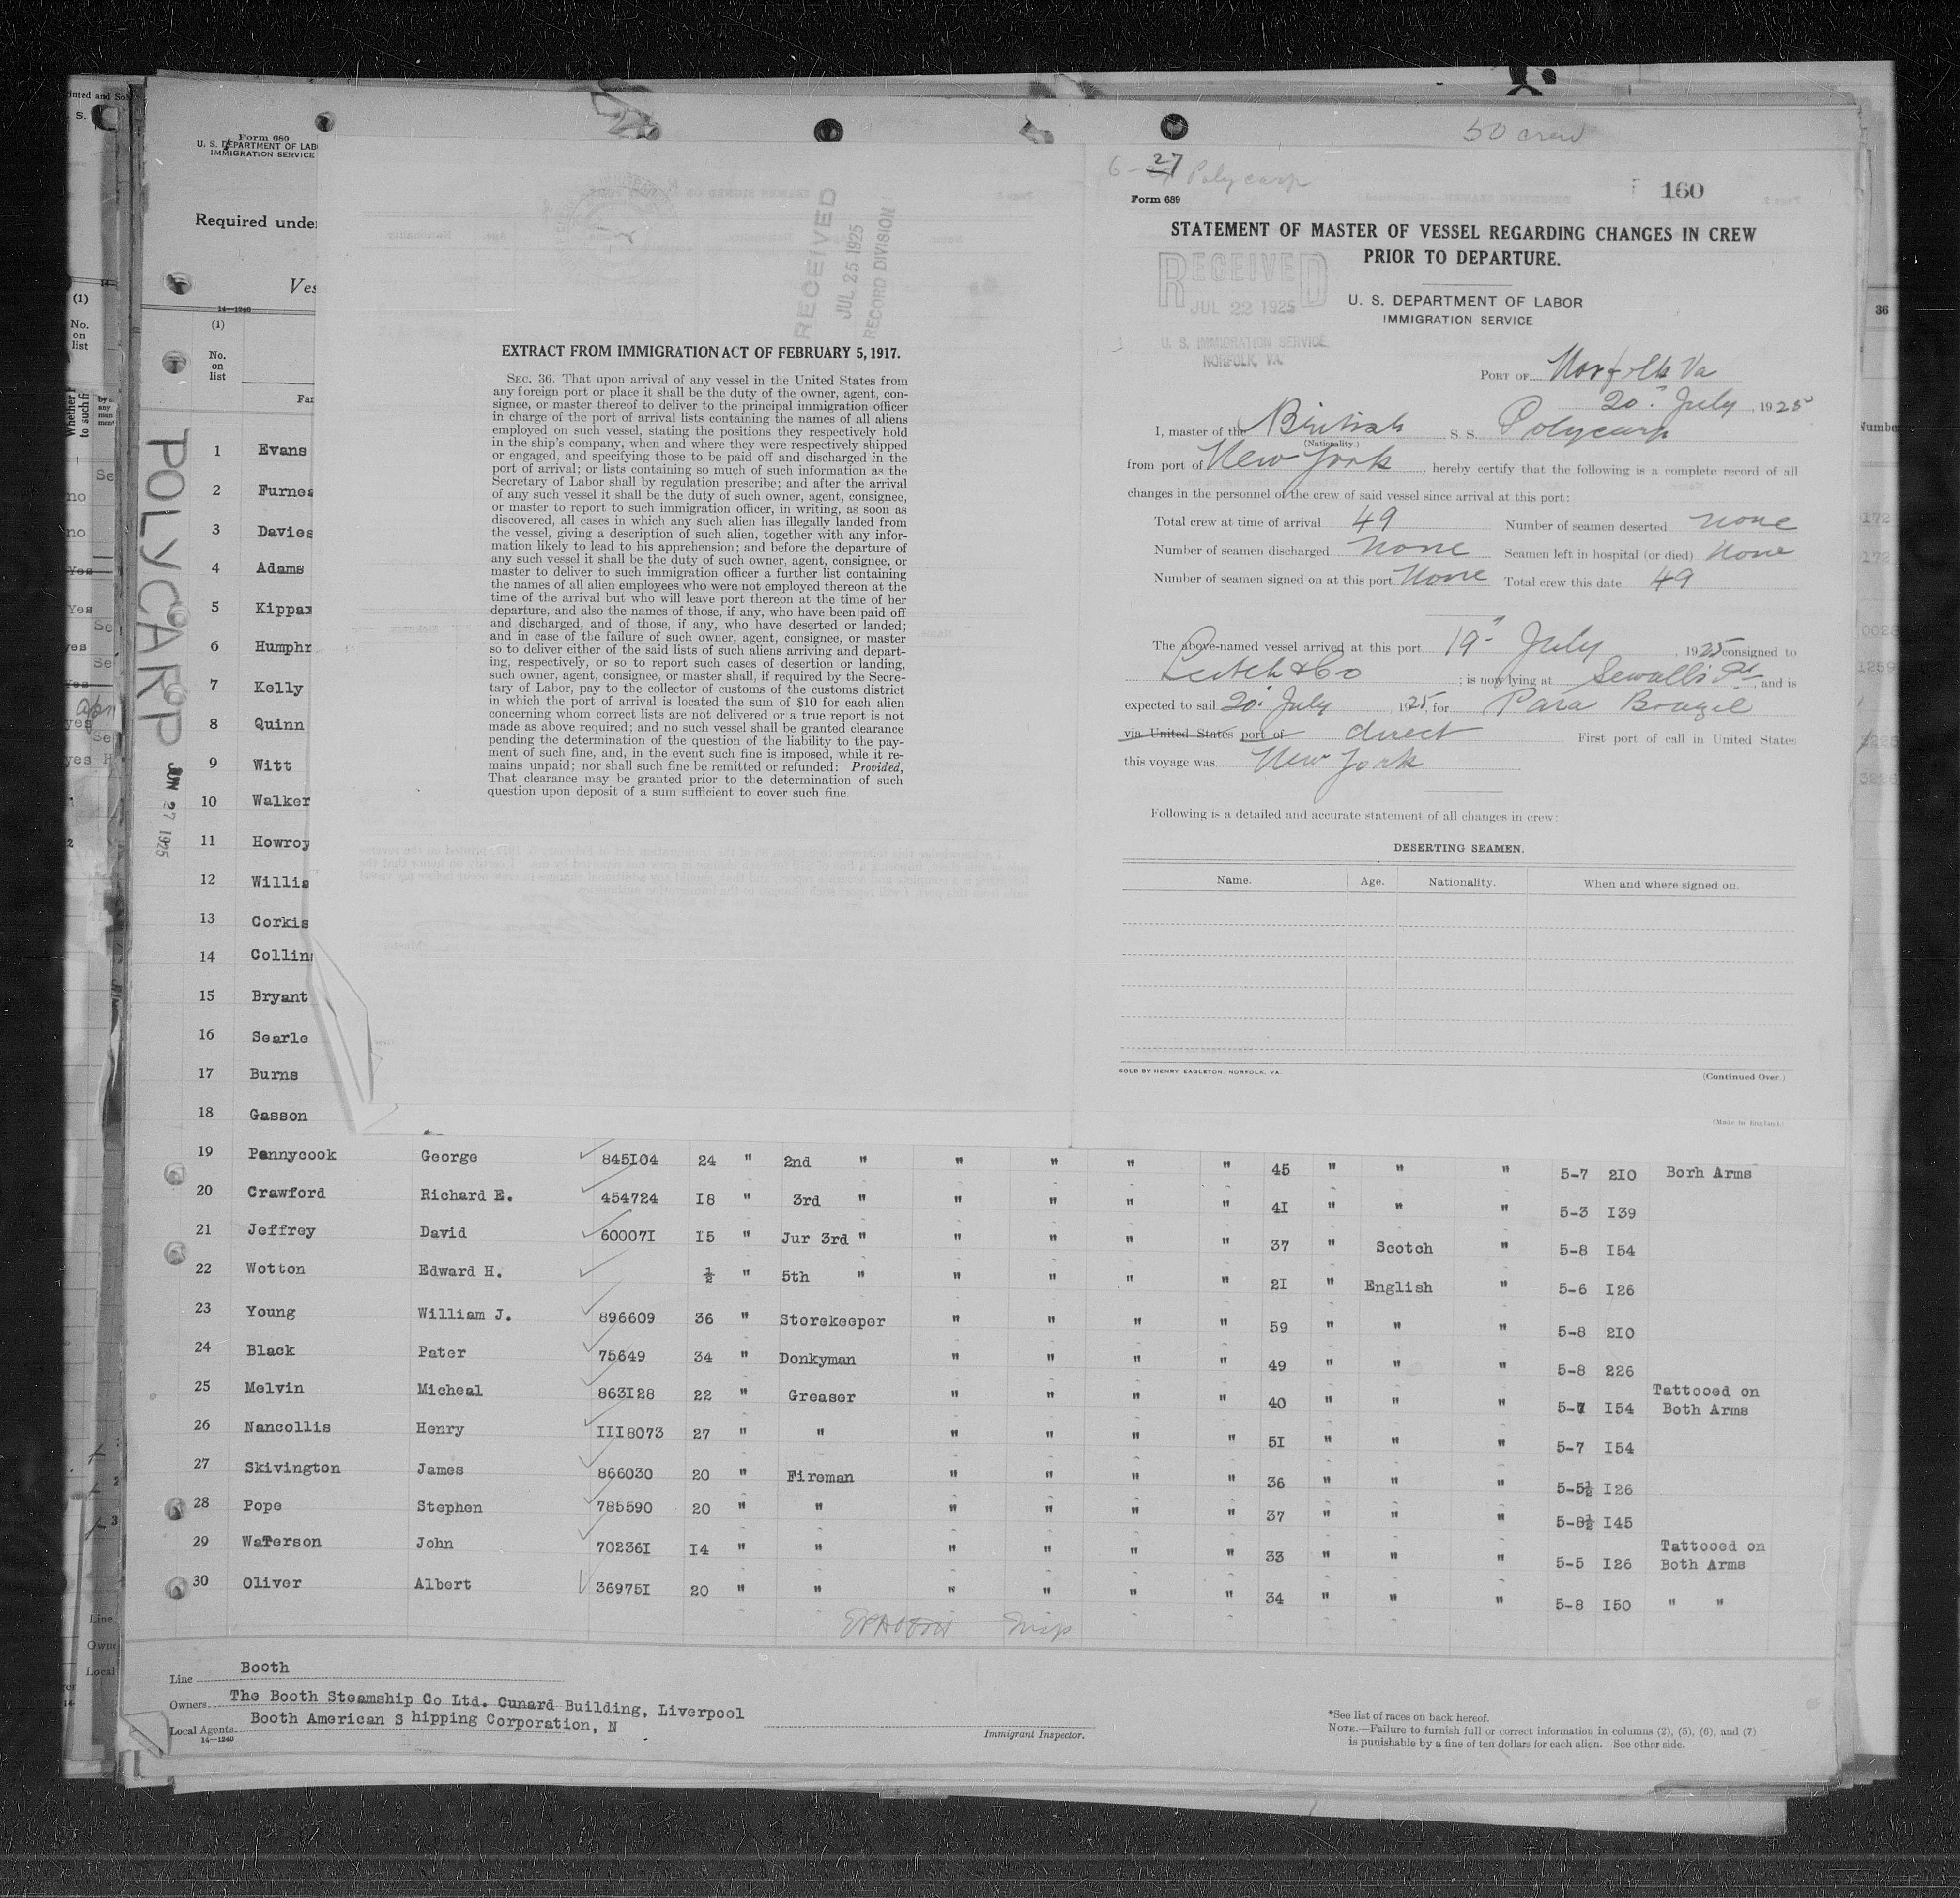 50 crew
6-27 Polycarp
Form 689
160
STATEMENT OF MASTER OF VESSEL REGARDING CHANGES IN CREW
PRIOR TO DEPARTURE.
U. S. DEPARTMENT OF LABOR
IMMIGRATION SERVICE
RECEIVED
JUL 22 1925
U. S. IMMIGRATION SERVICE
NORFOLK, VA.
PORT OF Norfolk Va
20" July, 1925
I, master of the British S. S. Polycarp
(Nationality.)
from port of New York, hereby certify that the following is a complete record of all
changes in the personnel of the crew of said vessel since arrival at this port:
Total crew at time of arrival 49 Number of seamen deserted none
Number of seamen discharged none Seamen left in hospital (or died) none
Number of seamen signed on at this port None Total crew this date 49
The above-named vessel arrived at this port 19" July, 1925 consigned to
Leitch & Co; is now lying at Sewalls Pt, and is
expected to sail 20" July, 1925, for Para Brazil
via United States port of direct First port of call in United States
this voyage was New York
Following is a detailed and accurate statement of all changes in crew:
DESERTING SEAMEN.
Name. Age. Nationality. When and where signed on.
SOLD BY HENRY EAGLETON, NORFOLK, VA.
(Continued Over.)
(Made in England.)
RECEIVED
JUL 25 1925
RECORD DIVISION
EXTRACT FROM IMMIGRATION ACT OF FEBRUARY 5, 1917.
SEC. 36. That upon arrival of any vessel in the United States from
any foreign port or place it shall be the duty of the owner, agent, con-
signee, or master thereof to deliver to the principal immigration officer
in charge of the port of arrival lists containing the names of all aliens
employed on such vessel, stating the positions they respectively hold
in the ship's company, when and where they were respectively shipped
or engaged, and specifying those to be paid off and discharged in the
port of arrival; or lists containing so much of such information as the
Secretary of Labor shall by regulation prescribe; and after the arrival
of any such vessel it shall be the duty of such owner, agent, consignee,
or master to report to such immigration officer, in writing, as soon as
discovered, all cases in which any such alien has illegally landed from
the vessel, giving a description of such alien, together with any infor-
mation likely to lead to his apprehension; and before the departure of
any such vessel it shall be the duty of such owner, agent, consignee, or
master to deliver to such immigration officer a further list containing
the names of all alien employees who were not employed thereon at the
time of the arrival but who will leave port thereon at the time of her
departure, and also the names of those, if any, who have been paid off
and discharged, and of those, if any, who have deserted or landed;
and in case of the failure of such owner, agent, consignee, or master
so to deliver either of the said lists of such aliens arriving and depart-
ing, respectively, or so to report such cases of desertion or landing,
such owner, agent, consignee, or master shall, if required by the Secre-
tary of Labor, pay to the collector of customs of the customs district
in which the port of arrival is located the sum of $10 for each alien
concerning whom correct lists are not delivered or a true report is not
made as above required; and no such vessel shall be granted clearance
pending the determination of the question of the liability to the pay-
ment of such fine, and, in the event such fine is imposed, while it re-
mains unpaid; nor shall such fine be remitted or refunded: Provided,
That clearance may be granted prior to the determination of such
question upon deposit of a sum sufficient to cover such fine.
Form 680
U. S. DEPARTMENT OF LAB
IMMIGRATION SERVICE
Required unde
Ves
14—1240
(1)
No.
on
list
Fa
POLYCARP JUN 27 1925
1 Evans
2 Furnes
3 Davies
4 Adams
5 Kippax
6 Humphr
7 Kelly
8 Quinn
9 Witt
10 Walker
11 Howroy
12 Willis
13 Corkis
14 Collin
15 Bryant
16 Searle
17 Burns
18 Gasson
19 Pennycook George 845I04 24 " 2nd " " " " " 45 " " " 5-7 2I0 Borh Arms
20 Crawford Richard E. 454724 I8 " 3rd " " " " " 4I " " " 5-3 I39
21 Jeffrey David 60007I I5 " Jur 3rd " " " " " 37 " Scotch " 5-8 I54
22 Wotton Edward H. ½ " 5th " " " " " 2I " English " 5-6 I26
23 Young William J. 896609 36 " Storekeeper " " " " 59 " " " 5-8 2I0
24 Black Pater 75649 34 " Donkyman " " " " 49 " " " 5-8 226
25 Melvin Micheal 863I28 22 " Greaser " " " " 40 " " " 5-7 I54 Tattooed on Both Arms
26 Nancollis Henry III8073 27 " " " " " " 5I " " " 5-7 I54
27 Skivington James 866030 20 " Fireman " " " " 36 " " " 5-5½ I26
28 Pope Stephen 785590 20 " " " " " " 37 " " " 5-8½ I45
29 WaTerson John 70236I I4 " " " " " " 33 " " " 5-5 I26 Tattooed on Both Arms
30 Oliver Albert 36975I 20 " " " " " " 34 " " " 5-8 I50 " "
Line Booth
Owners The Booth Steamship Co Ltd. Cunard Building, Liverpool
Local Agents Booth American S hipping Corporation, N
14—1240
Immigrant Inspector.
*See list of races on back hereof.
NOTE.—Failure to furnish full or correct information in columns (2), (5), (6), and (7)
is punishable by a fine of ten dollars for each alien. See other side.